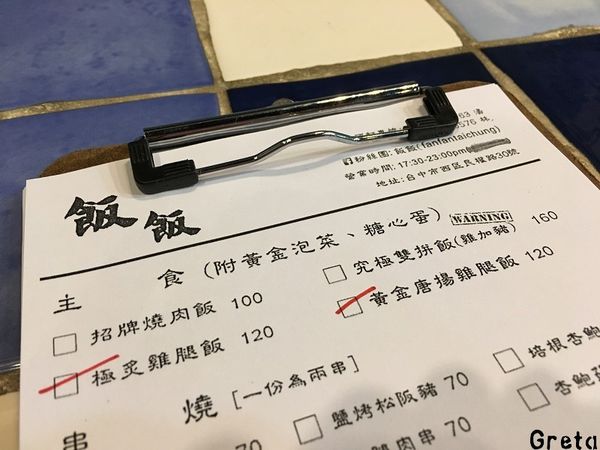 63 潘
676 林
粉絲團: 飯飯(fanfantaichung)
營業時間: 17:30-23:00pm
地址:台中市西區民權路30號
飯飯
主 食 (附黃金泡菜、糖心蛋)
招牌燒肉飯 100
究極雙拼飯(雞加豬) WARNING 160
極炙雞腿飯 120
黃金唐揚雞腿飯 120
串 燒 [一份為兩串]
70
鹽烤松阪豬 70
培根杏鮑
肉串 70
杏鮑
Greta